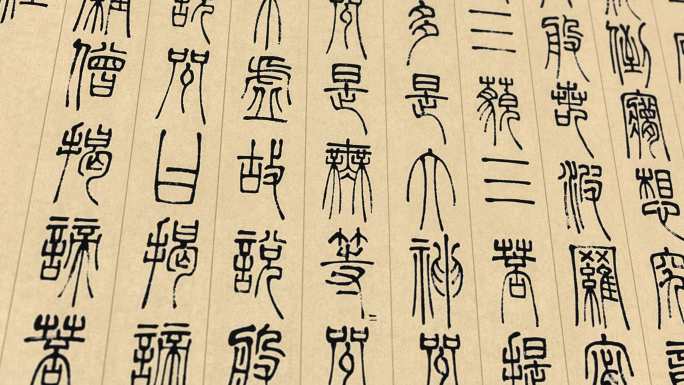 倒夢想究竟
般若波羅蜜
三藐三菩提
多是大神咒
咒是無等〻咒
不虛故說般
說咒曰揭諦
僧揭諦菩